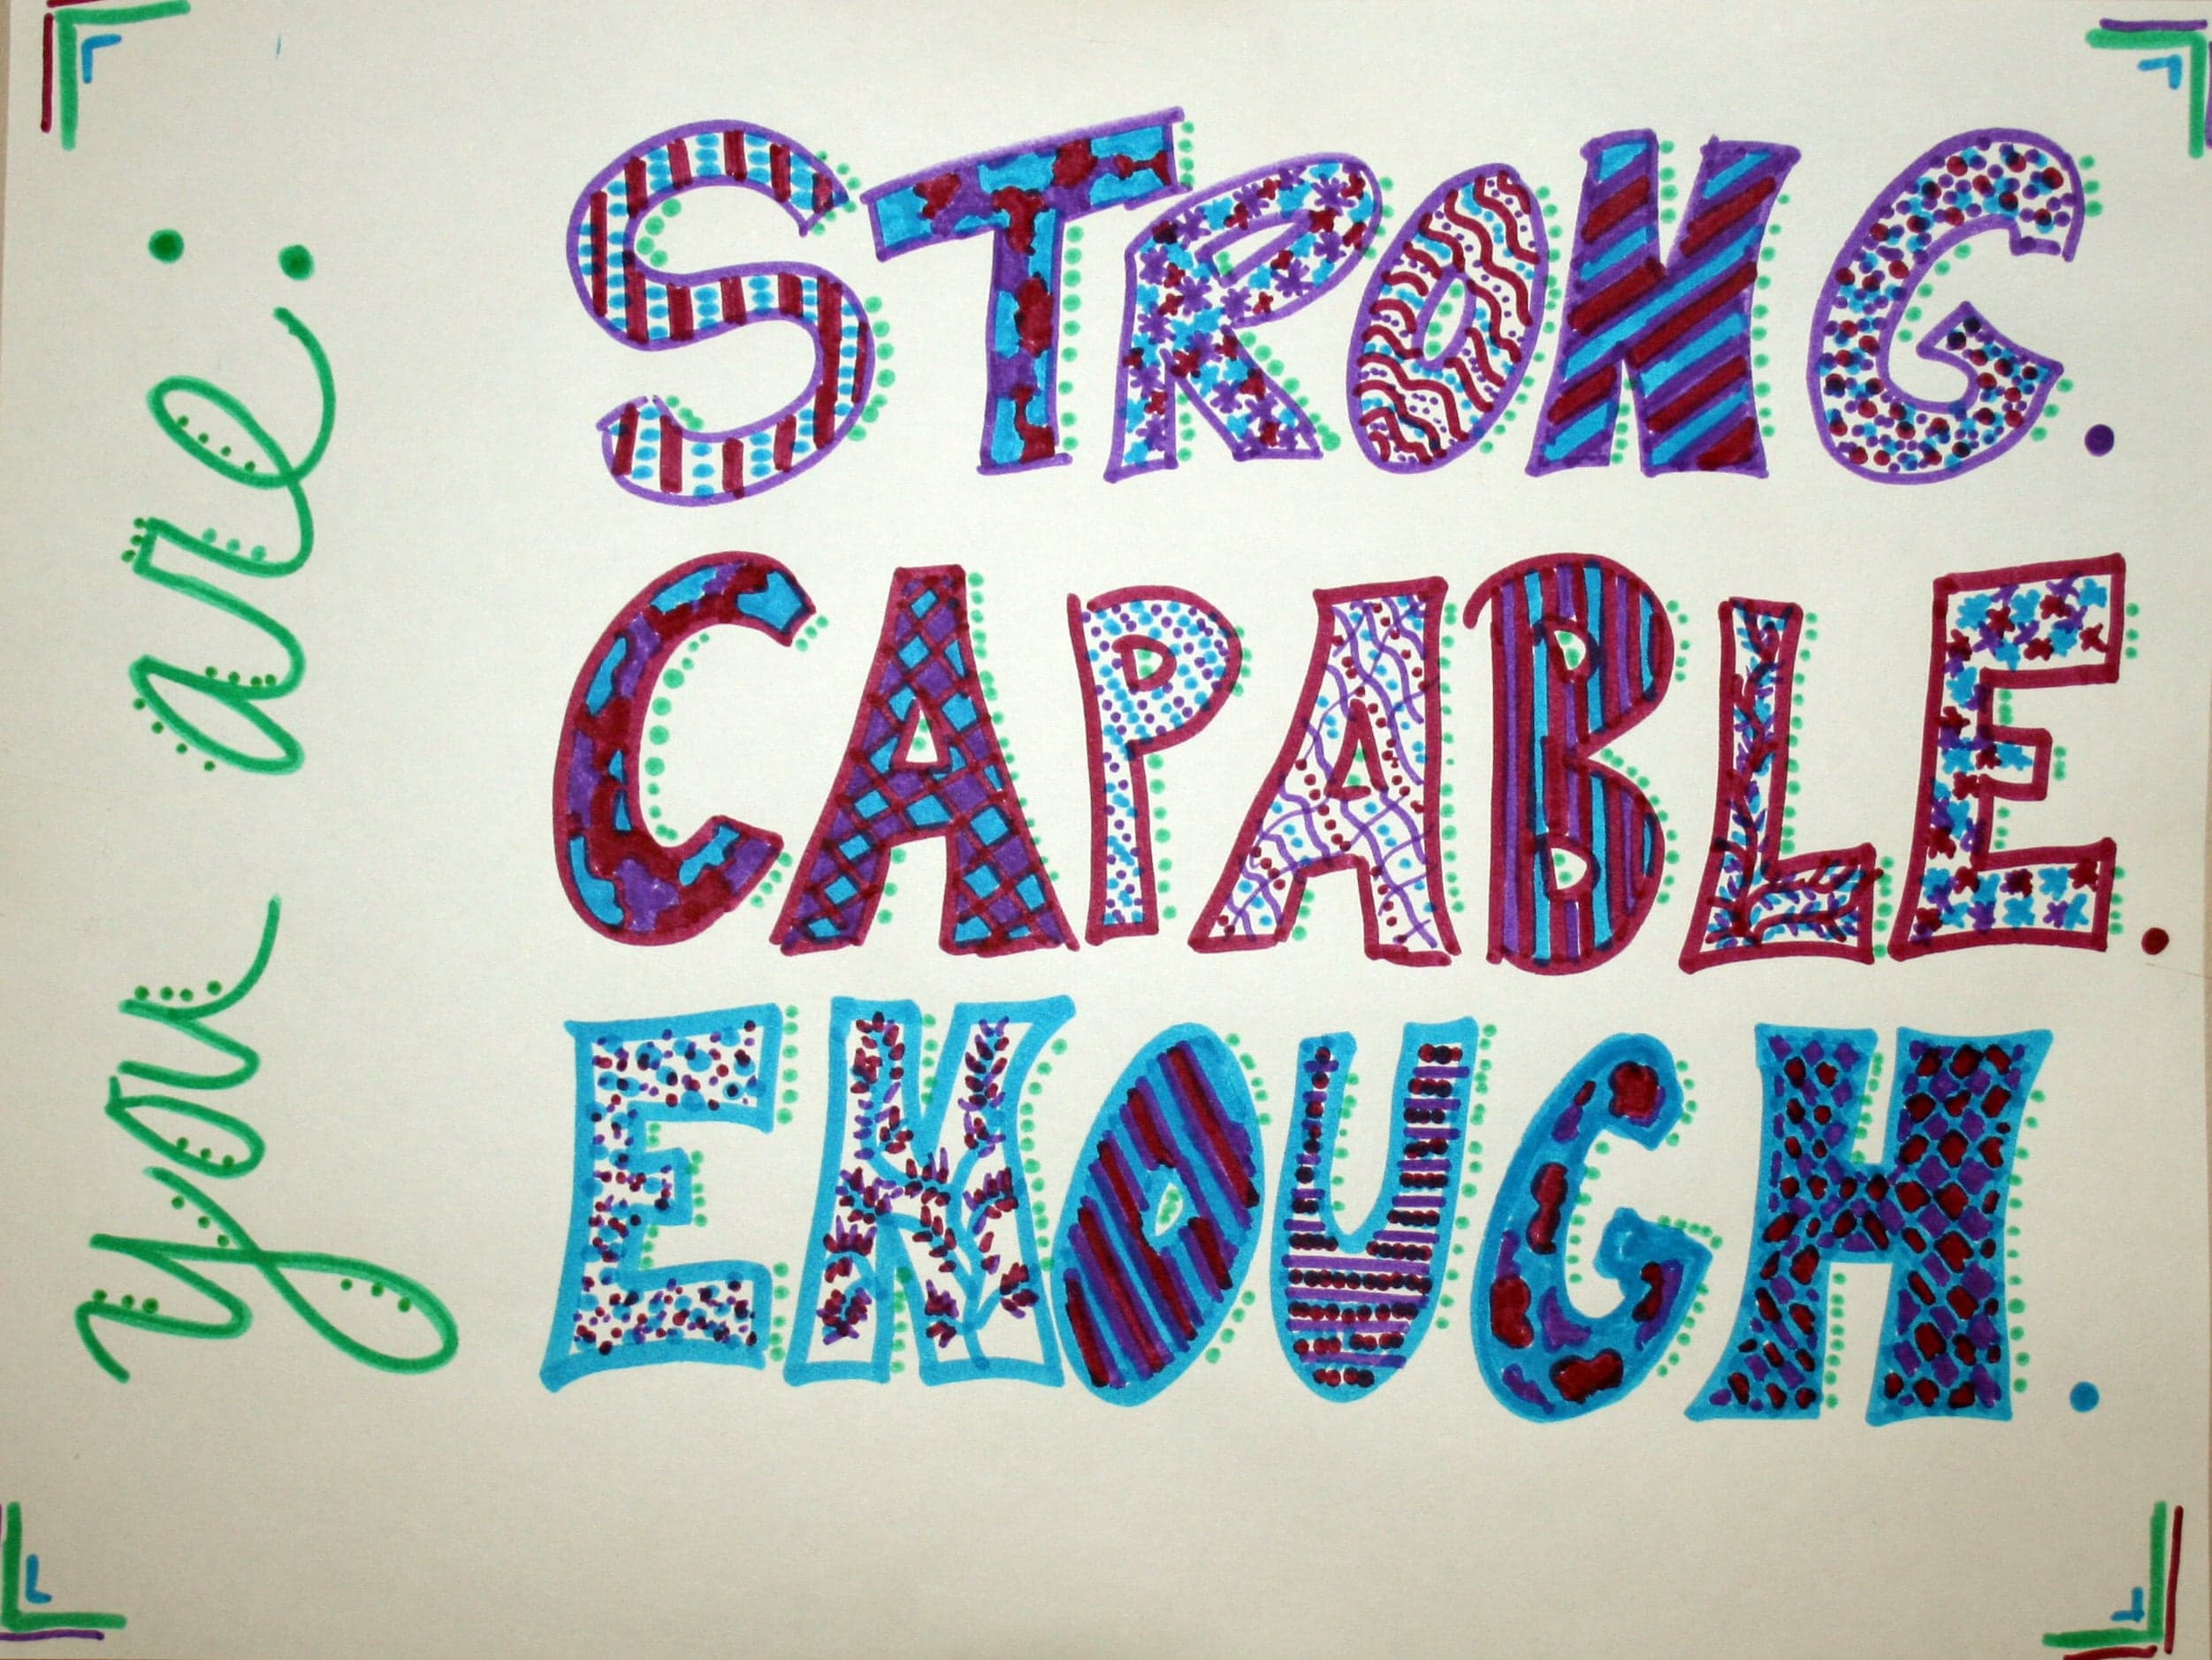 you are:
STRONG.
CAPABLE.
ENOUGH.